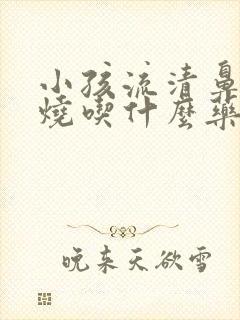 小孩流清鼻
燒喫什麼藥
晚来天欲雪